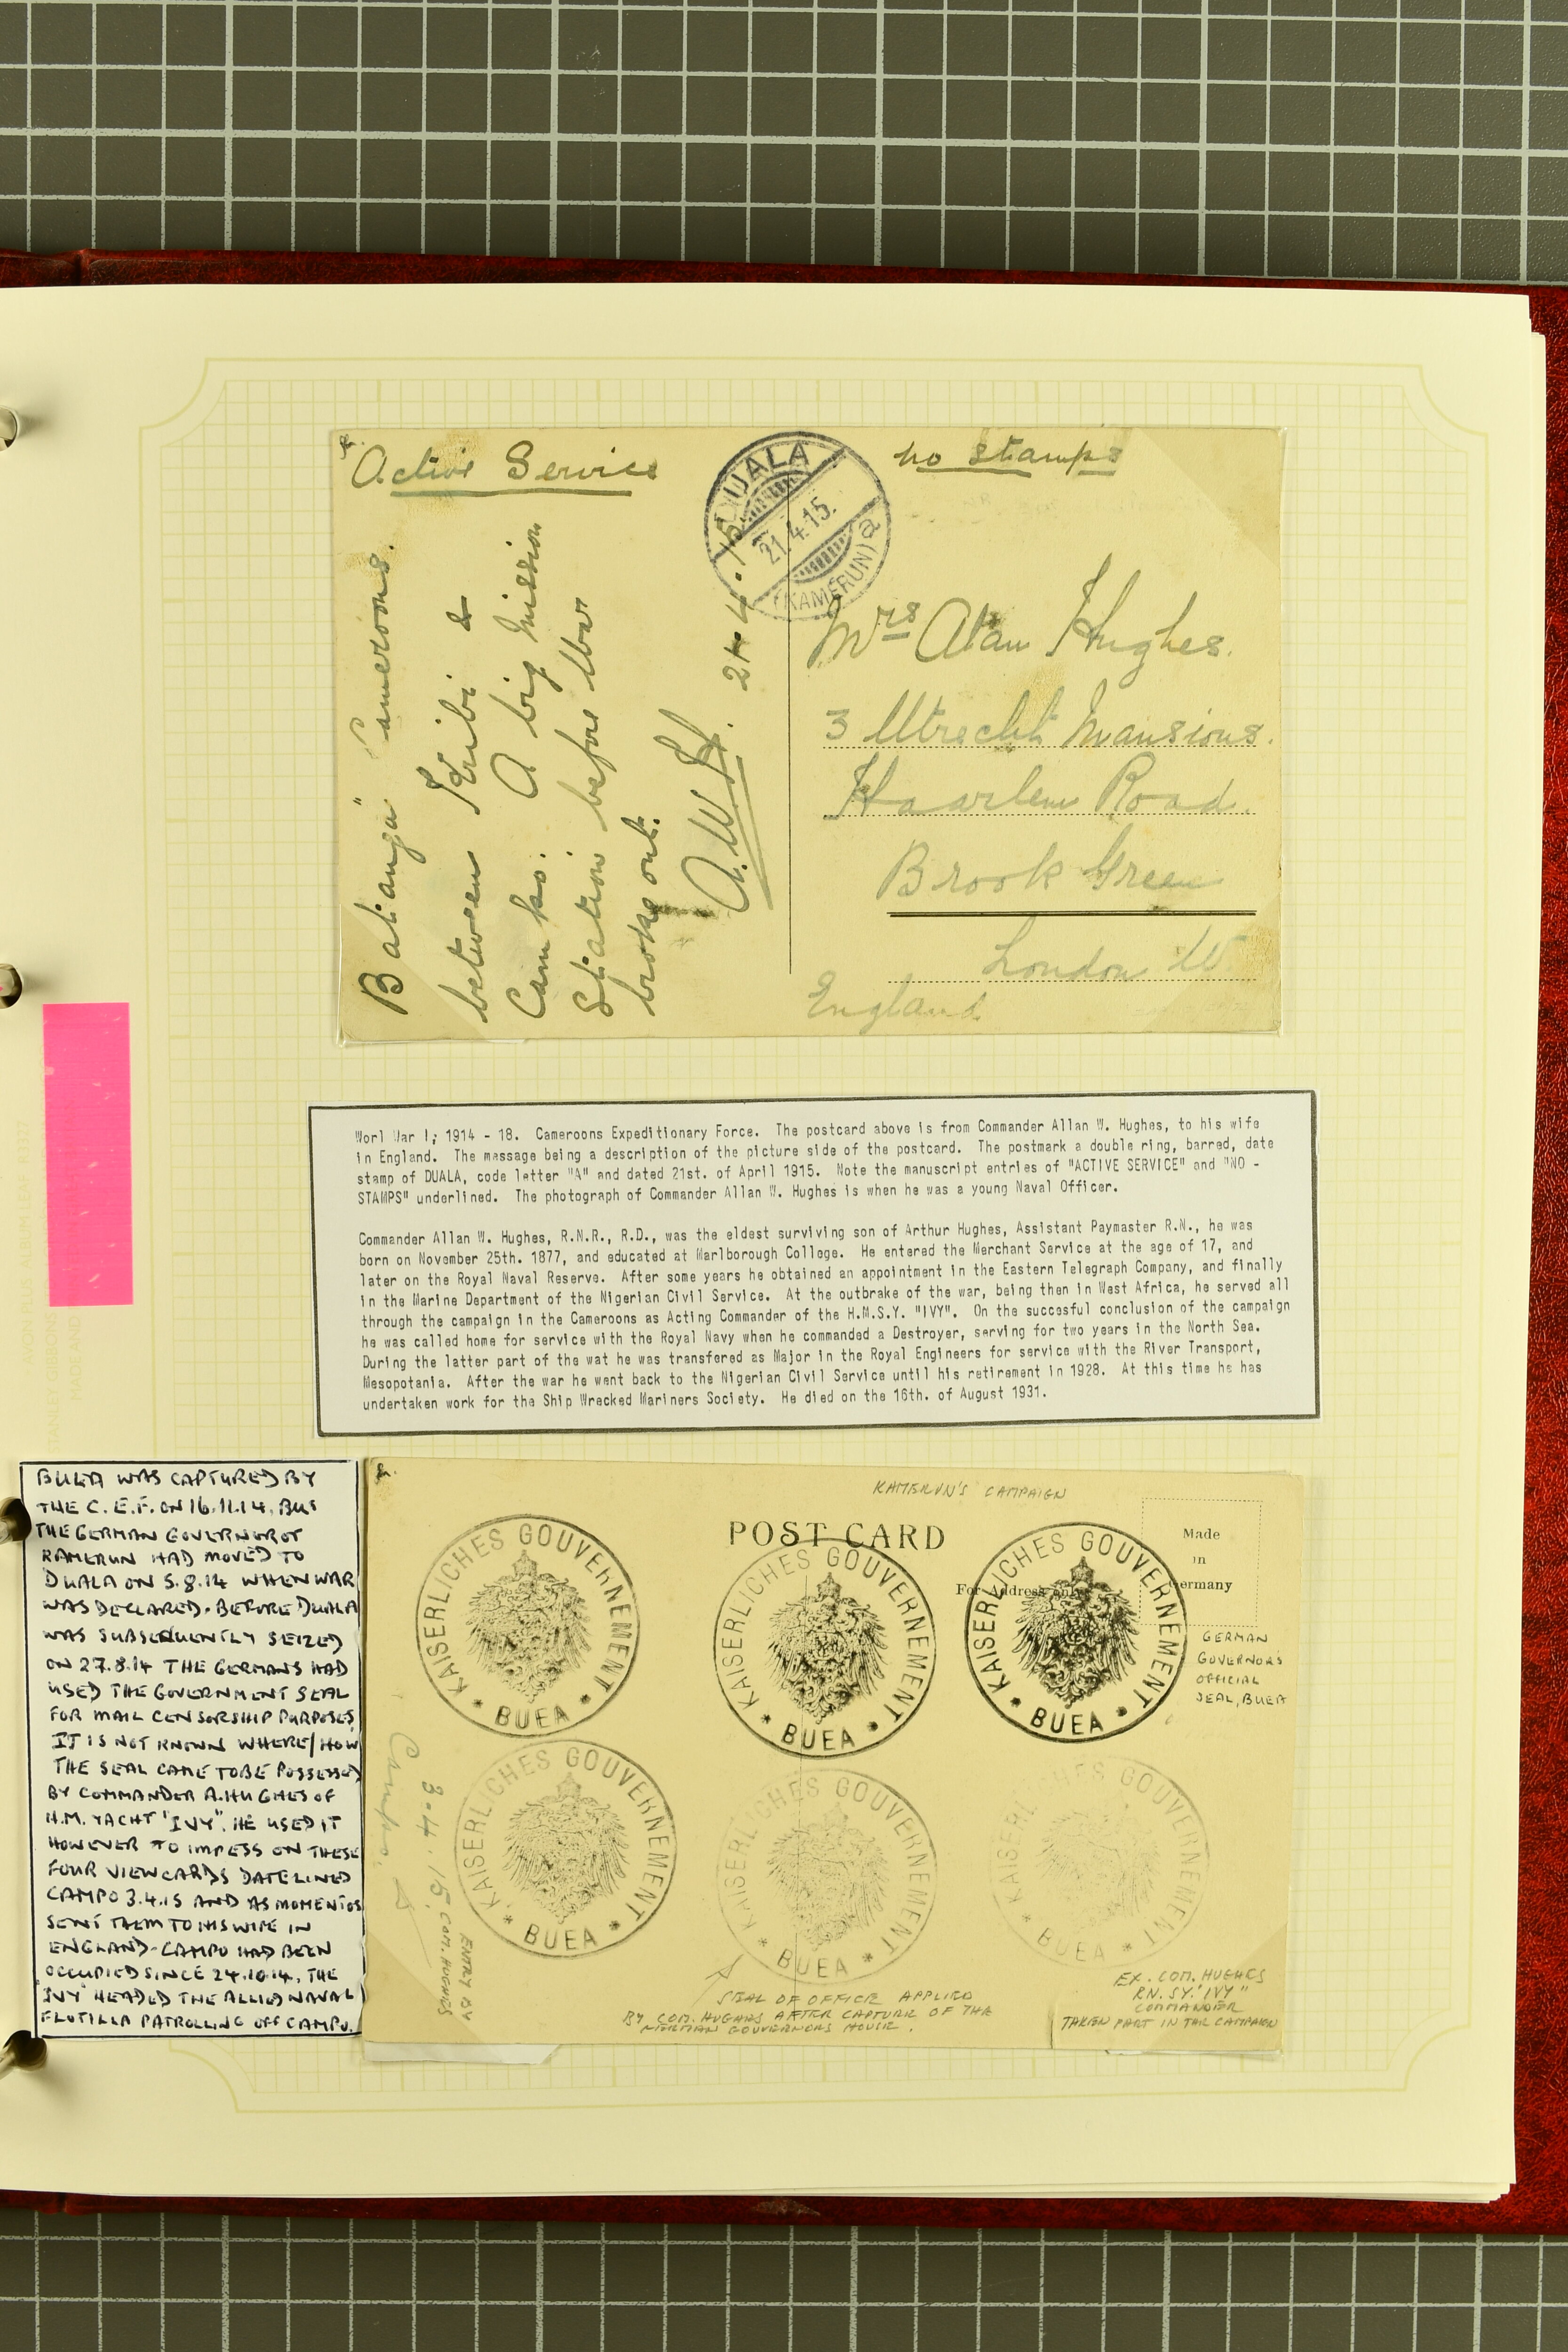 Active Service
no stamps
DUALA
21.4.15.
(KAMERUN) a
Batanga" Cameroons.
between Kribi &
Campo. A big mission
Station before War
broke out.
A.W.H. 21.4.15
Mrs Alan Hughes.
3 Utrecht Mansions.
Haarlem Road.
Brook Green
London W
England.
Worl War I; 1914 - 18. Cameroons Expeditionary Force. The postcard above is from Commander Allan W. Hughes, to his wife
in England. The massage being a description of the picture side of the postcard. The postmark a double ring, barred, date
stamp of DUALA, code letter "A" and dated 21st. of April 1915. Note the manuscript entries of "ACTIVE SERVICE" and "NO -
STAMPS" underlined. The photograph of Commander Allan W. Hughes is when he was a young Naval Officer.
Commander Allan W. Hughes, R.N.R., R.D., was the eldest surviving son of Arthur Hughes, Assistant Paymaster R.N., he was
born on November 25th. 1877, and educated at Marlborough College. He entered the Merchant Service at the age of 17, and
later on the Royal Naval Reserve. After some years he obtained an appointment in the Eastern Telegraph Company, and finally
in the Marine Department of the Nigerian Civil Service. At the outbrake of the war, being then in West Africa, he served all
through the campaign in the Cameroons as Acting Commander of the H.M.S.Y. "IVY". On the succesful conclusion of the campaign
he was called home for service with the Royal Navy when he commanded a Destroyer, serving for two years in the North Sea.
During the latter part of the wat he was transfered as Major in the Royal Engineers for service with the River Transport,
Mesopotania. After the war he went back to the Nigerian Civil Service until his retirement in 1928. At this time he has
undertaken work for the Ship Wrecked Mariners Society. He died on the 16th. of August 1931.
BUEA WAS CAPTURED BY
THE C.E.F. ON 16.11.14, BUT
THE GERMAN GOVERNOR OF
KAMERUN HAD MOVED TO
DUALA ON 5.8.14 WHEN WAR
WAS DECLARED. BEFORE DUALA
WAS SUBSEQUENTLY SEIZED
ON 27.8.14 THE GERMANS HAD
USED THE GOVERNMENT SEAL
FOR MAIL CENSORSHIP PURPOSES.
IT IS NOT KNOWN WHERE/HOW
THE SEAL CAME TO BE POSSESSED
BY COMMANDER A.HUGHES OF
H.M. YACHT "IVY". HE USED IT
HOWEVER TO IMPESS ON THESE
FOUR VIEWCARDS DATELINED
CAMPO 3.4.15 AND AS MOMENTOS
SENT THEM TO HIS WIFE IN
ENGLAND-CAMPO HAD BEEN
OCCUPIED SINCE 24.10.14. THE
"IVY" HEADED THE ALLIED NAVAL
FLOTILLA PATROLLING OFF CAMPO.
KAMERUN'S CAMPAIGN
POST CARD
For Address only
Made
in
Germany
KAISERLICHES GOUVERNEMENT
* BUEA *
KAISERLICHES GOUVERNEMENT
* BUEA *
KAISERLICHES GOUVERNEMENT
* BUEA *
GERMAN
GOVERNORS
OFFICIAL
SEAL, BUEA
KAISERLICHES GOUVERNEMENT
* BUEA *
KAISERLICHES GOUVERNEMENT
* BUEA *
KAISERLICHES GOUVERNEMENT
* BUEA *
Campo.
3.4.15
ENTRY BY
COM. HUGHES
SEAL OF OFFICE APPLIED
BY COM. HUGHES AFTER CAPTURE OF THE
GERMAN GOUVERNORS HOUSE.
EX. COM. HUGHES
RN. SY. "IVY"
COMMANDER
TAKEN PART IN THE CAMPAIGN